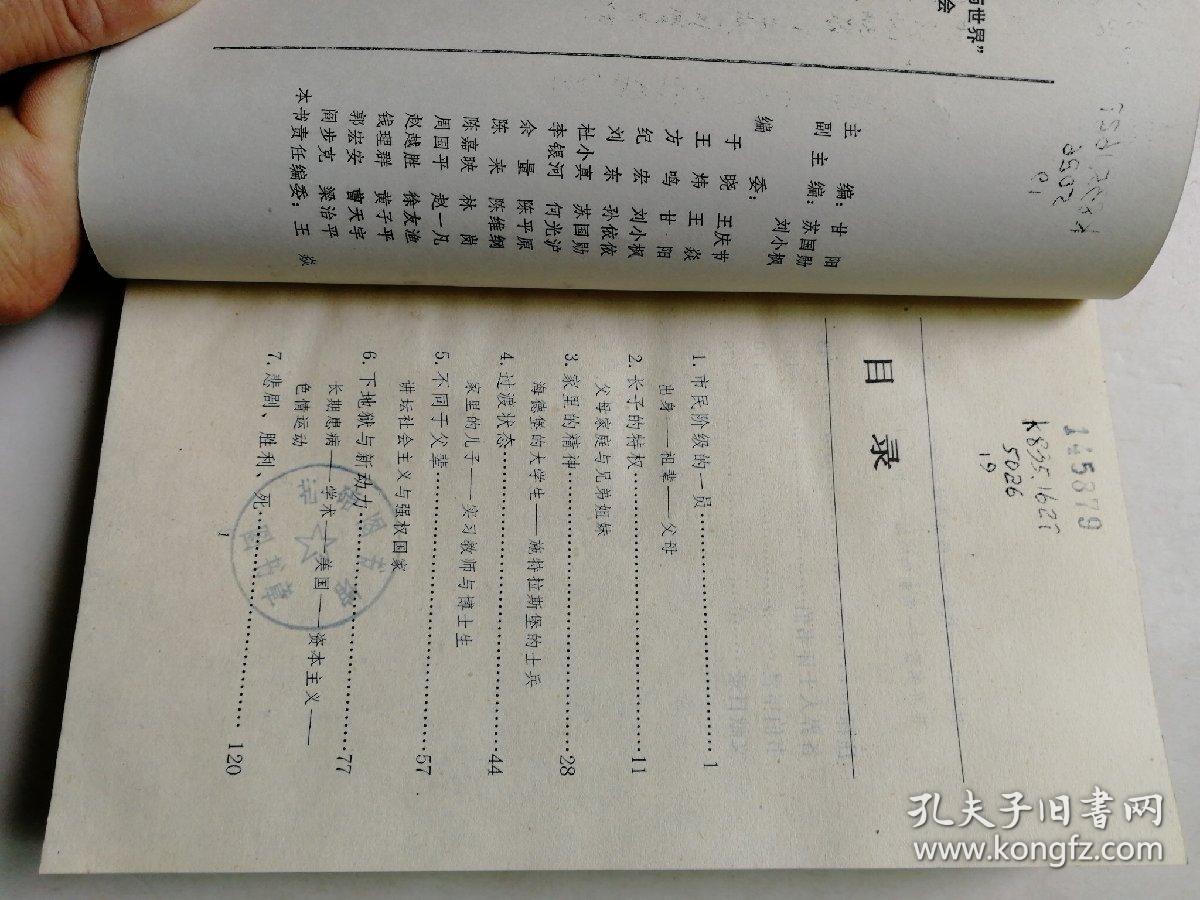 世界”
会
主 编：甘 阳
副主编：苏国勋
刘小枫
编 委：
于 晓 王庆节
王 炜 王 焱
方 鸣 甘 阳
纪 宏 刘小枫
刘 东 孙依依
杜小真 苏国勋
李银河 何光沪
余 量 陈平原
陈 来 陈维纲
陈嘉映 林 岗
周国平 赵一凡
赵越胜 徐友渔
钱理群 黄子平
郭宏安 曹天宇
阎步克 梁治平
本书责任编委：王 焱
5026
19
目 录
1. 市民阶级的一员……………………1
出身——祖辈——父母
2. 长子的特权……………………11
父母家庭与兄弟姐妹
3. 家里的精神……………………28
海德堡的大学生——施特拉斯堡的士兵
4. 过渡状态……………………44
家里的儿子——实习教师与博士生
5. 不同于父辈……………………57
讲坛社会主义与强权国家
6. 下地狱与新动力……………………77
长期患病——学术——美国——资本主义——
色情运动
7. 悲剧、胜利、死……………………120
孔夫子旧书网
www.kongfz.com